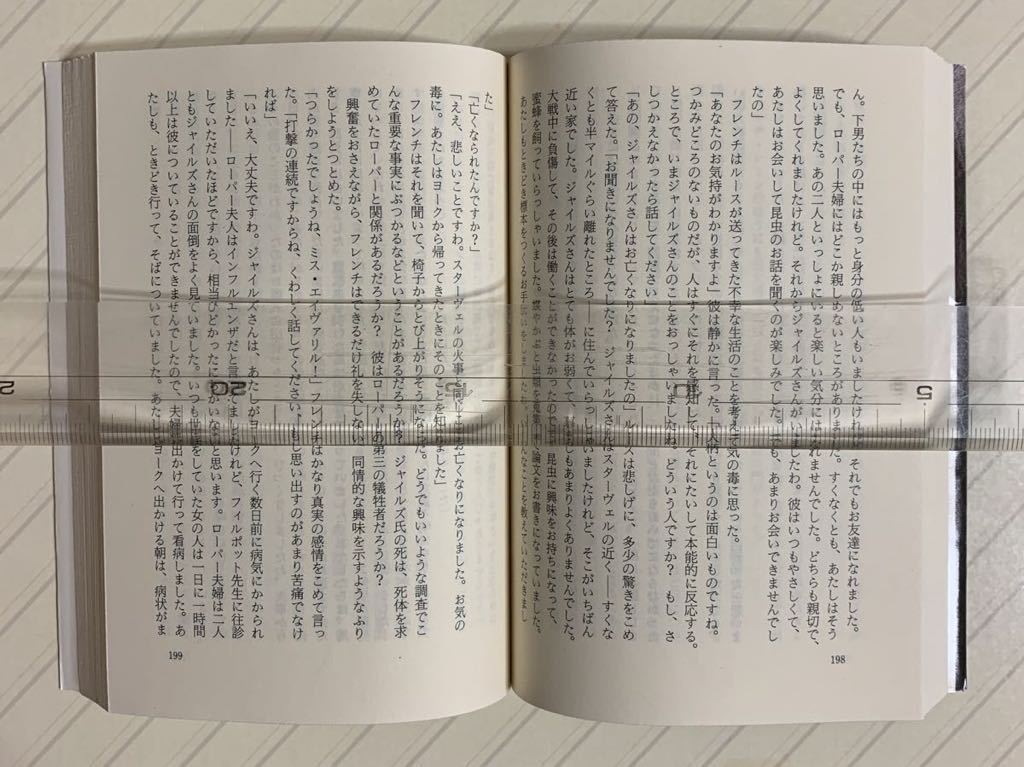 ん。下男たちの中にはもっと身分の低い人もいましたけれど、それでもお友達になれました。
でも、ローパー夫婦にはどこか親しめないところがありました。すくなくとも、あたしはそう
思いました。あの二人といっしょにいると楽しい気分にはなれませんでした。どちらも親切で、
よくしてくれましたけれど。それからジャイルズさんがいましたわ。彼はいつもやさしくて、
あたしはお会いして昆虫のお話を聞くのが楽しみでした。でも、あまりお会いできませんでし
たの」
フレンチはルースが送ってきた不幸な生活のことを考えて気の毒に思った。
「あなたのお気持がわかりますよ」彼は静かに言った。「人柄というのは面白いものですね。
つかみどころのないものだが、人はすぐにそれを感知して、それにたいして本能的に反応する。
ところで、いまジャイルズさんのことをおっしゃいましたね。どういう人ですか? もし、さ
しつかえなかったら話してください」
「あの、ジャイルズさんはお亡くなりになりましたの」ルースは悲しげに、多少の驚きをこめ
て答えた。「お聞きになりませんでした? ジャイルズさんはスターヴェルの近く――すくな
くとも半マイルぐらい離れたところ――に住んでいらっしゃいましたけれど、そこがいちばん
近い家でした。ジャイルズさんはとても体がお弱くて、
大戦中に負傷して、その後は働くことができなかったのです。昆虫に興味をお持ちになって、
蜜蜂を飼っていらっしゃいました。蝶やかぶと虫類を蒐集し、論文をお書きになっていました。
あたしもときどき標本をつくるお手伝いをしました。いろんなことを教えていただきまし
198
た」
「亡くなられたんですか?」
「ええ、悲しいことですわ。スターヴェルの火事と同じときにお亡くなりになりました。お気の
毒に。あたしはヨークから帰ってきたときにそのことを知りました」
フレンチはそれを聞いて、椅子からとび上がりそうになった。どうでもいいような調査でこ
んな重要な事実にぶつかるなどということがあるだろうか? ジャイルズ氏の死は、死体を求
めていたローパーと関係があるだろうか? 彼はローパーの第三の犠牲者だろうか?
興奮をおさえながら、フレンチはできるだけ礼を失しない、同情的な興味を示すようなふり
をしようとつとめた。
「つらかったでしょうね、ミス・エイヴァリル!」フレンチはかなり真実の感情をこめて言っ
た。「打撃の連続ですからね、くわしく話してください、もし思い出すのがあまり苦痛でなけ
れば」
「いいえ、大丈夫ですわ。ジャイルズさんは、あたしがヨークへ行く数日前に病気にかかられ
ました――ローパー夫人はインフルエンザだと言ってましたけれど、フィルポット先生に往診
していただいたほどですから、相当ひどかったにちがいないと思います。ローパー夫婦は二人
ともジャイルズさんの面倒をよく見ていました。いつも世話をしていた女の人は一日に一時間
以上は彼についていることができませんでしたので、夫婦が出かけて行って看病しました。あ
たしも、ときどき行って、そばについていました。あたしがヨークへ出かける朝は、病状がま
199
5
10
15
20
2